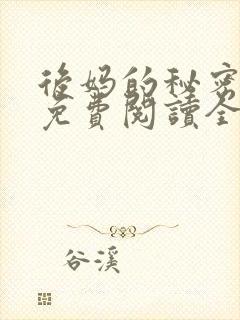 後妈的秘密
免費閱讀全
谷溪